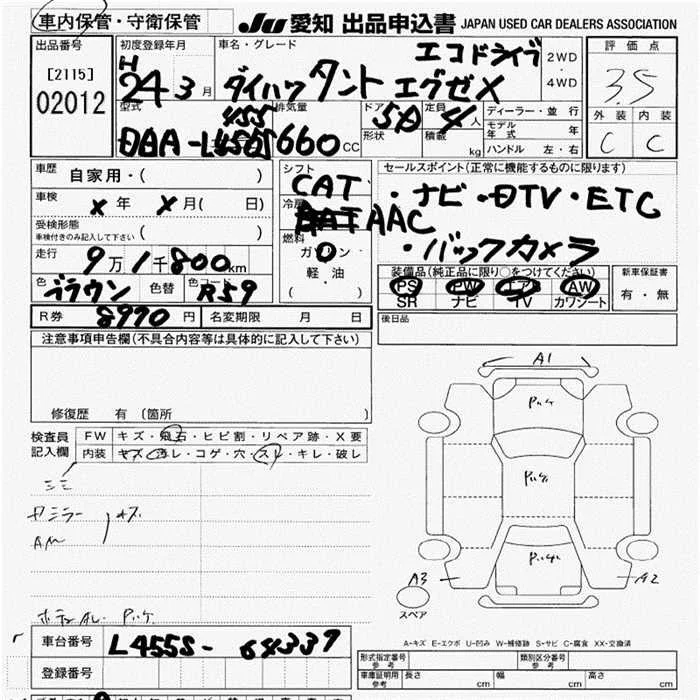 車内保管・守衛保管 JU 愛知 出品申込書 JAPAN USED CAR DEALERS ASSOCIATION
出品番号
[2115]
02012
初度登録年月
H
24 3 月
車名・グレード
エコドライブ
ダイハツ タント エグゼX
2WD
4WD
評価点
3.5
外装 内装
C C
型式
455
DBA-L456S
排気量
660 CC
ドア
5D
形状
定員
4 人
積載
kg
ディーラー・並行
モデル年式 年
ハンドル 左・右
車歴
自家用・( )
車検
X 年 X 月( 日)
受検形態
車検付きのみ記入して下さい ( )
走行
9 万 1 千 800 km
色
ブラウン
色替
色コード
R59
シフト
CAT
冷房
AAC
燃料
ガソリン
軽油
( )
セールスポイント(正常に機能するものに限ります)
・ナビ・DTV・ETC
・バックカメラ
装備品(純正品に限り○をつけてください)
PS PW エア AW
SR ナビ TV カワシート
新車保証書
有・無
R券 8970 円 名変期限 月 日
後日品
注意事項申告欄(不具合内容等は具体的に記入して下さい)
修復歴 有(箇所 )
検査員
記入欄
FW キズ・飛石・ヒビ割・リペア跡・X要
内装 キズ・汚レ・コゲ・穴・スレ・キレ・破レ
A1
A3
A2
スペア
A-キズ E-エクボ U-凹み W-補修跡 S-サビ C-腐食 XX-交換済
車台番号 L455S-64339
登録番号
形式指定番号
参考
類別区分番号
参考
車庫証明用
参考
長さ cm 幅 cm 高さ cm